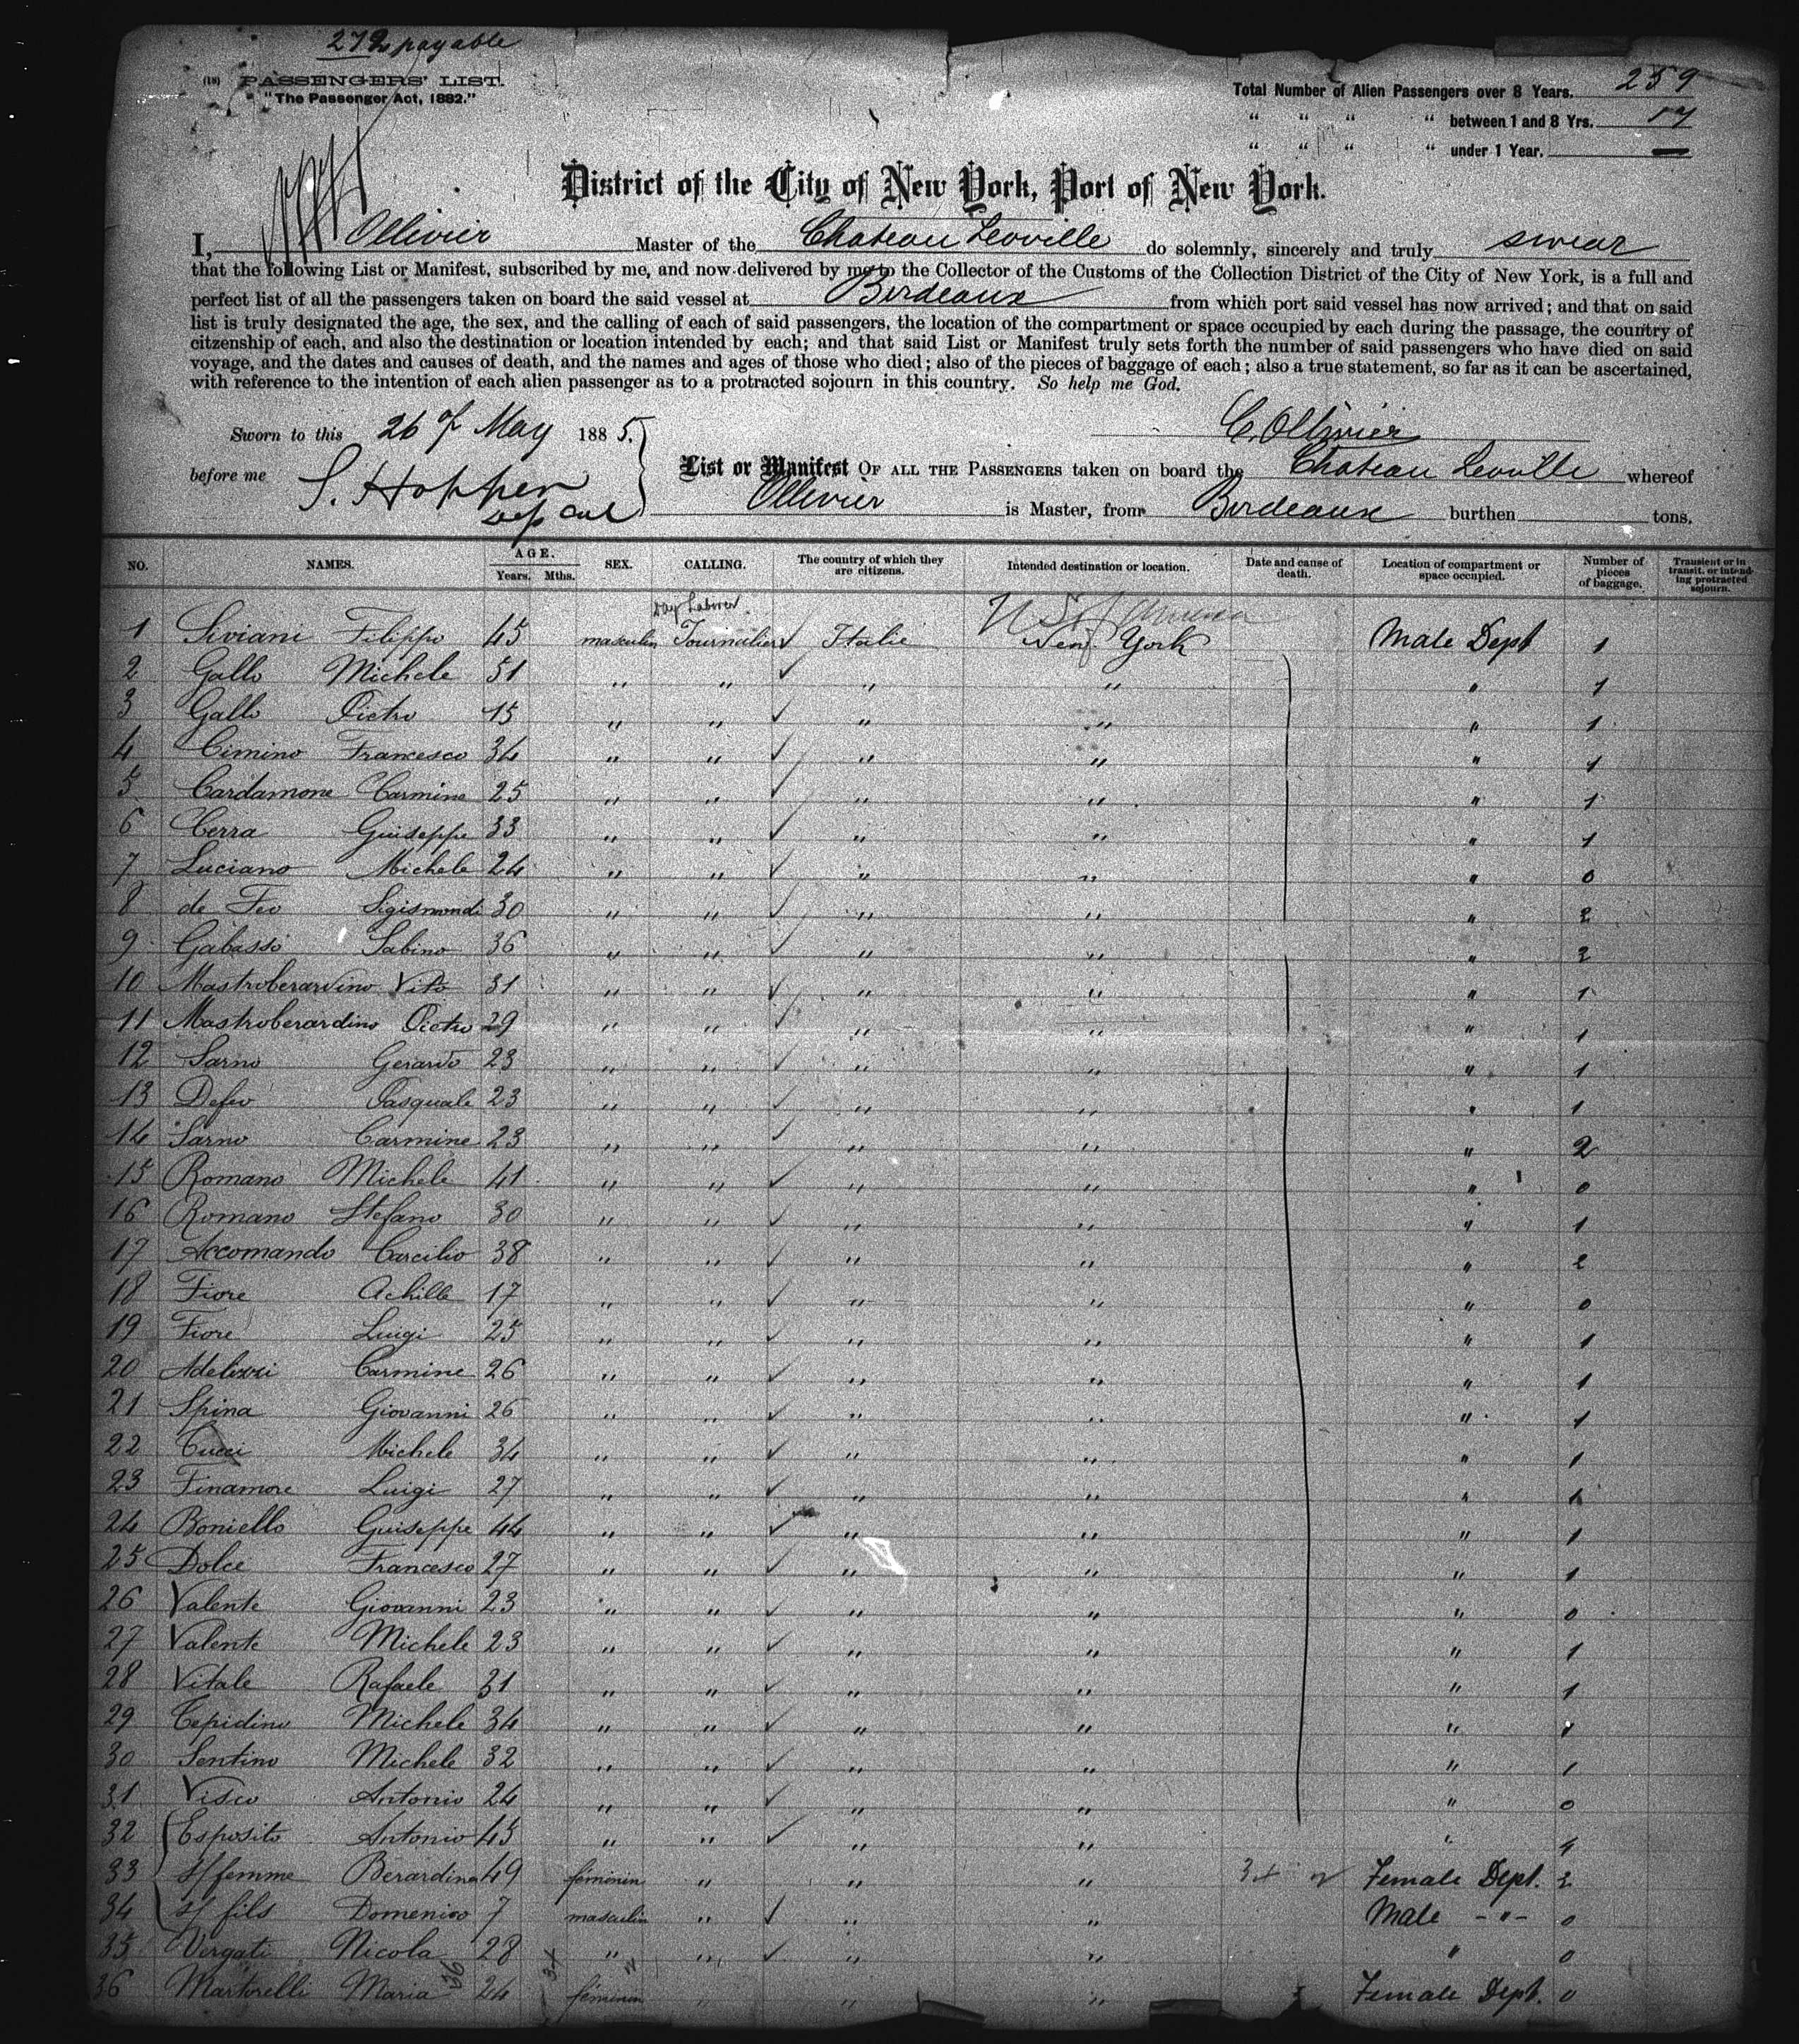 272 payable
(18) PASSENGERS' LIST.
"The Passenger Act, 1882."
Total Number of Alien Passengers over 8 Years. 259
" " " " between 1 and 8 Yrs. 17
" " " " under 1 Year. —
District of the City of New York, Port of New York.
I, Ollivier Master of the Chateau Leoville do solemnly, sincerely and truly swear
that the following List or Manifest, subscribed by me, and now delivered by me to the Collector of the Customs of the Collection District of the City of New York, is a full and
perfect list of all the passengers taken on board the said vessel at Bordeaux from which port said vessel has now arrived; and that on said
list is truly designated the age, the sex, and the calling of each of said passengers, the location of the compartment or space occupied by each during the passage, the country of
citzenship of each, and also the destination or location intended by each; and that said List or Manifest truly sets forth the number of said passengers who have died on said
voyage, and the dates and causes of death, and the names and ages of those who died; also of the pieces of baggage of each; also a true statement, so far as it can be ascertained,
with reference to the intention of each alien passenger as to a protracted sojourn in this country. So help me God.
Sworn to this 26 of May 1885. C. Ollivier
before me S. Hopper
List or Manifest OF ALL THE PASSENGERS taken on board the Chateau Leoville whereof
Ollivier is Master, from Bordeaux burthen tons.
NO. NAMES. AGE. Years. Mths. SEX. CALLING. The country of which they are citizens. Intended destination or location. Date and cause of death. Location of compartment or space occupied. Number of pieces of baggage. Transient or in transit, or intending protracted sojourn.
Day Laborer
1 Siviani Filippo 45 masculin Journalier Italie New York Male Dept 1
2 Gallo Michele 51 " " " " " 1
3 Gallo Pietro 15 " " " " " 1
4 Cimino Francesco 34 " " " " " 1
5 Cardamone Carmine 25 " " " " " 1
6 Cerra Guiseppe 33 " " " " " 1
7 Luciano Michele 24 " " " " " 0
8 de Feo Sigismondi 30 " " " " " 2
9 Gabasso Sabino 36 " " " " " 2
10 Mastroberardino Vito 31 " " " " " 1
11 Mastroberardino Pietro 29 " " " " " 1
12 Sarno Gerardo 23 " " " " " 1
13 Defeo Pasquale 23 " " " " " 1
14 Sarno Carmine 23 " " " " " 2
15 Romano Michele 41 " " " " " 0
16 Romano Stefano 30 " " " " " 1
17 Accomando Carcilio 38 " " " " " 2
18 Fiore Achille 17 " " " " " 0
19 Fiore Luigi 25 " " " " " 1
20 Adelizzi Carmine 26 " " " " " 1
21 Spina Giovanni 26 " " " " " 1
22 Cucci Michele 34 " " " " " 1
23 Finamore Luigi 27 " " " " " 1
24 Boniello Guiseppe 44 " " " " " 1
25 Dolce Francesco 27 " " " " " 1
26 Valente Giovanni 23 " " " " " 0
27 Valente Michele 23 " " " " " 1
28 Vitale Rafaele 31 " " " " " 1
29 Cepidino Michele 34 " " " " " 1
30 Sentino Michele 32 " " " " " 1
31 Visco Antonio 24 " " " " " 0
32 Esposito Antonio 45 " " " " " 4
33 s/ femme Berardina 49 féminin " " " Female Dept. 2
34 s/ fils Domenico 7 masculin " " " Male - " - 0
35 Vergati Nicola 28 " " " " " 0
36 Martorelli Maria 24 féminin " " " Female Dept. 0